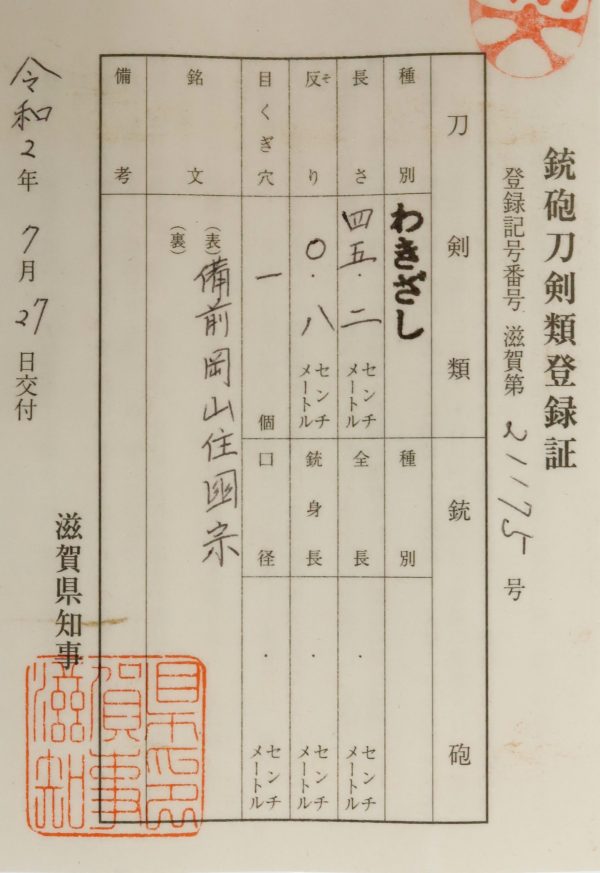 銃砲刀剣類登録証
登録記号番号 滋賀第 21175 号
刀剣類 銃砲
種別 わきざし 種別
長さ 四五・二 センチメートル 全長 ・ センチメートル
反り(そ) 〇・八 センチメートル 銃身長 ・ センチメートル
目くぎ穴 一 個 口径 ・ センチメートル
銘文 (表) 備前岡山住國宗
(裏)
備考
滋賀県知事
令和2年7月27日交付
滋賀県知事印